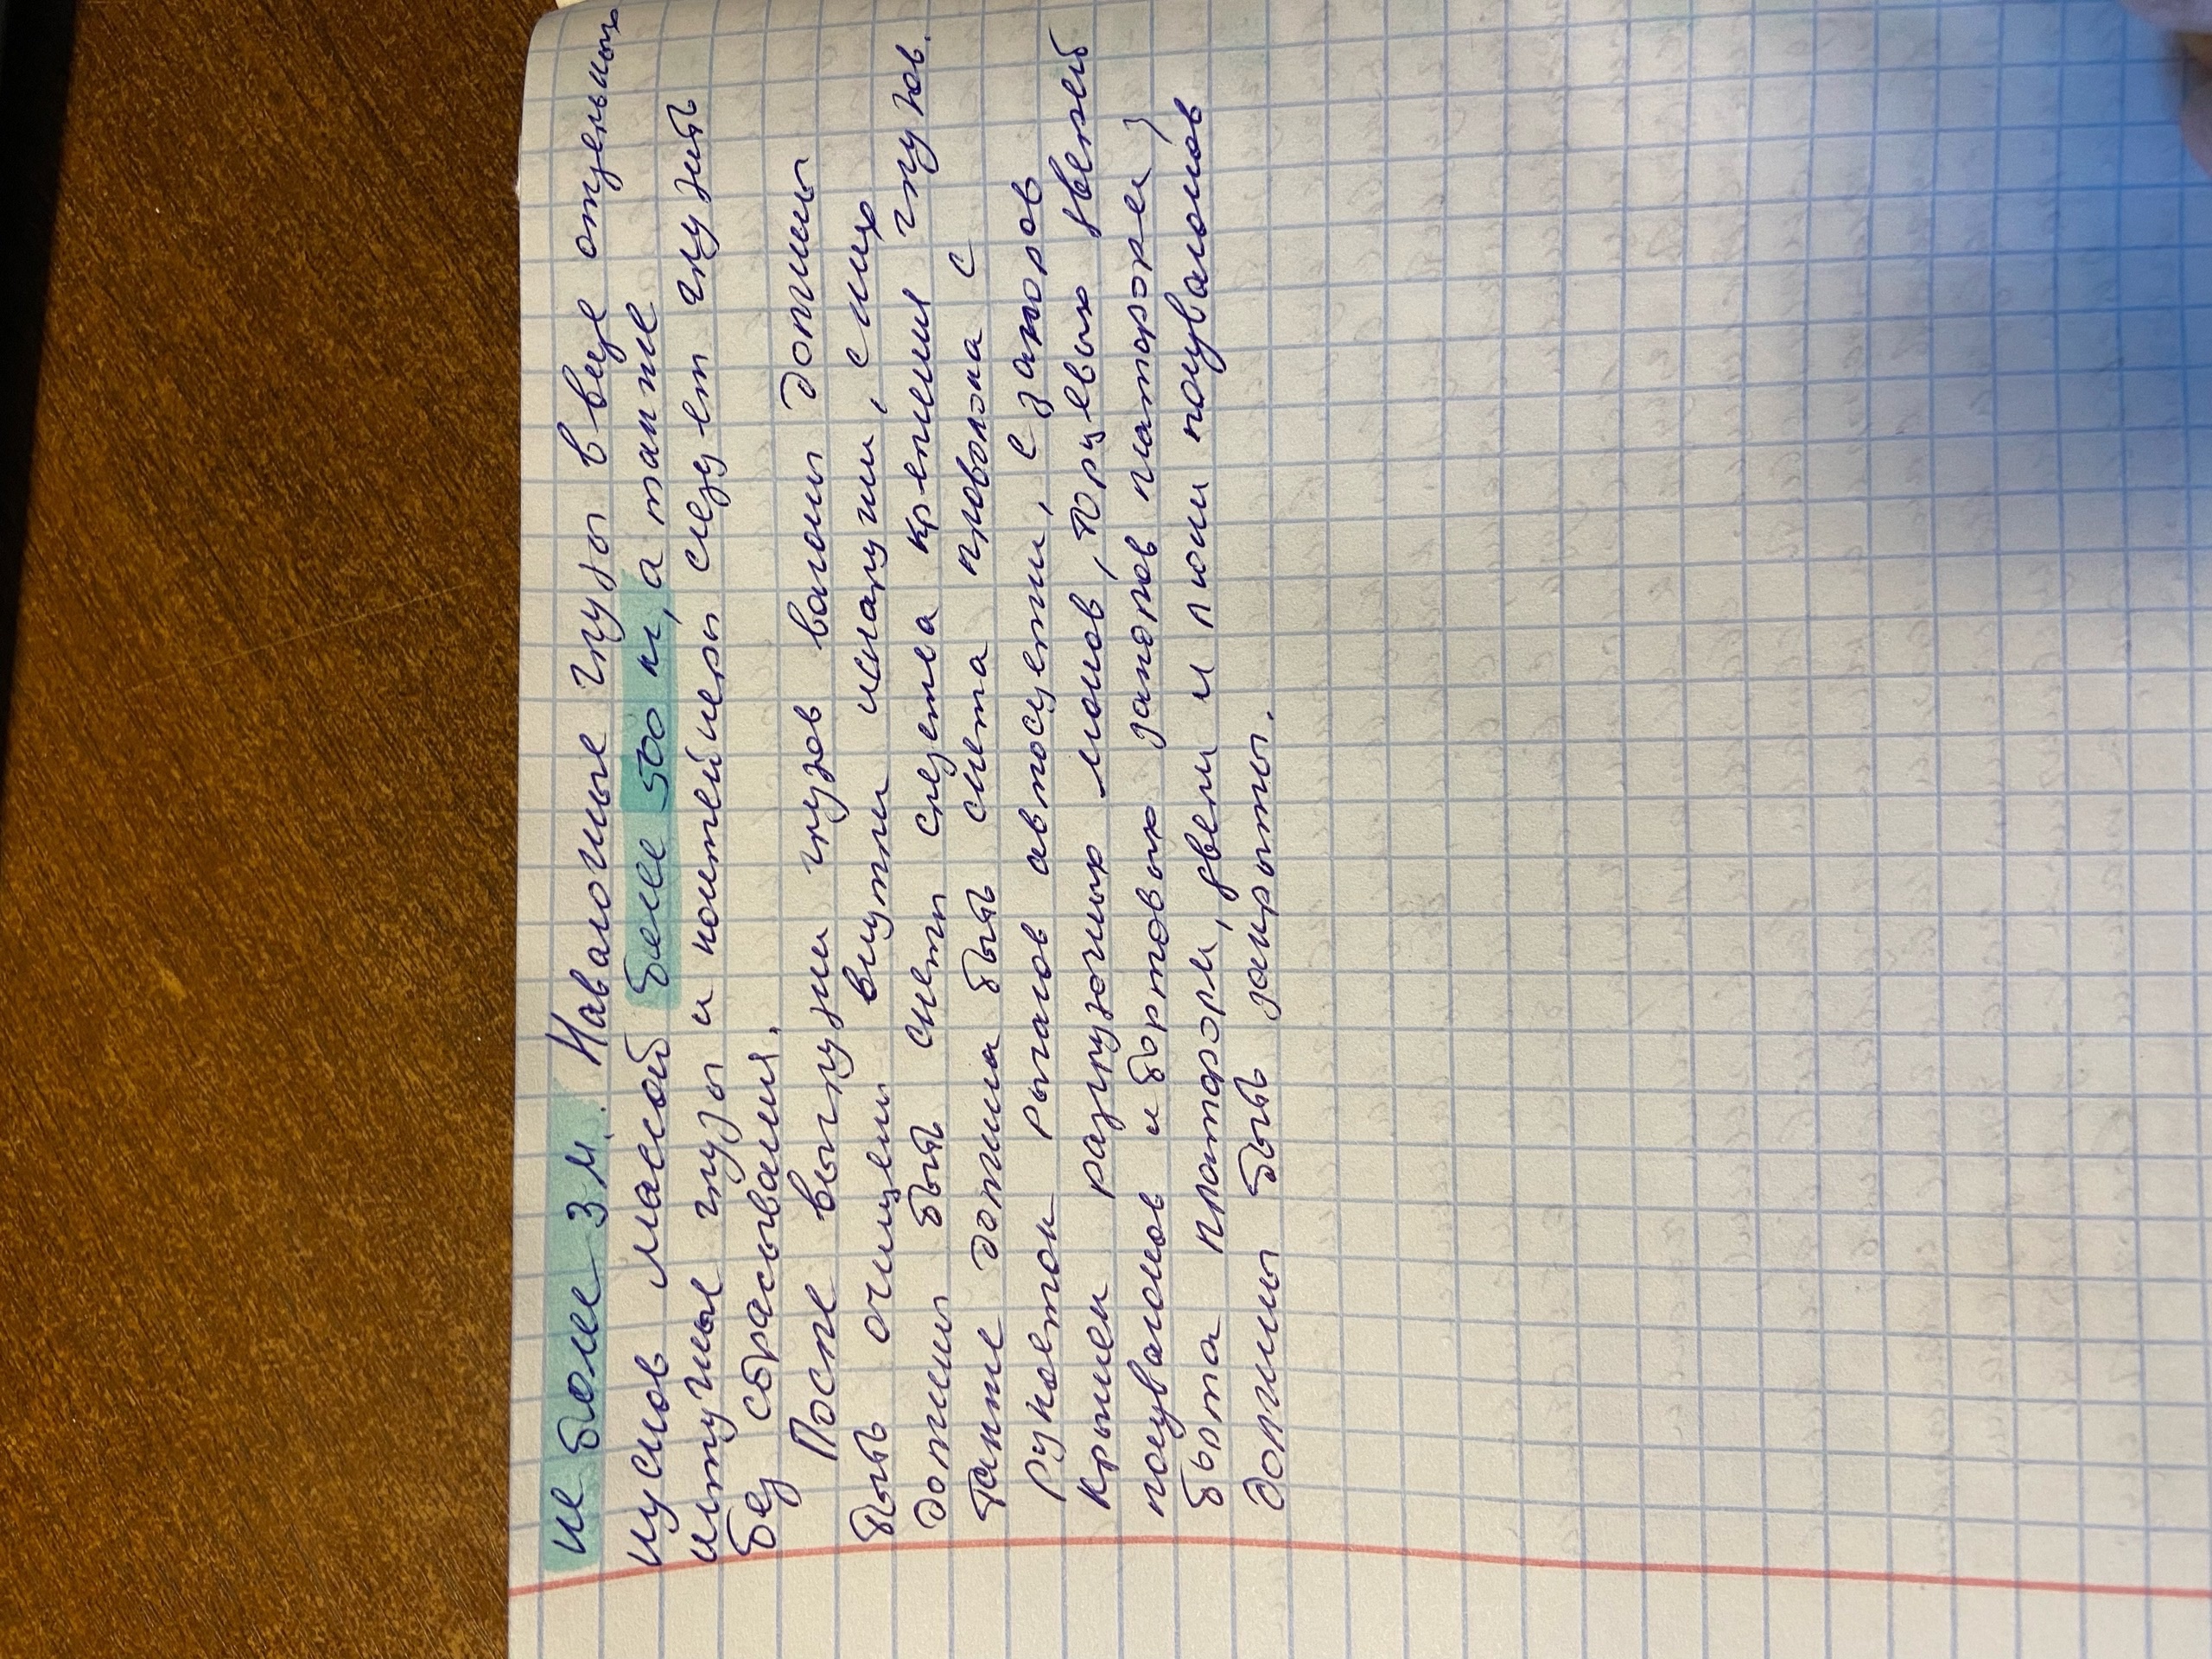 не более 3 м. Навалочные грузы в виде отдельных
кусков массой более 500 кг, а также
штучные грузы и контейнеры следует грузить
без сбрасывания.
После выгрузки грузов вагоны должны
быть очищены внутри и снаружи, с них
должны быть сняты средства крепления грузов.
Также должна быть снята проволока с
рукояток рычагов автосцепки, с запоров
крышек разгрузочных люков, торцевых дверей
полувагонов и бортовых запоров платформ,
борта платформ, двери и люки полувагонов
должны быть закрыты.